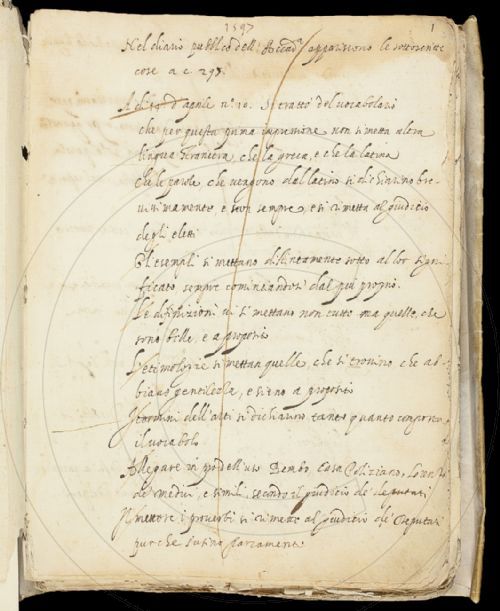 1597
1
Nel diario pubblico dell' Accad.ᵃ appariscono le
cose a c. 293.
A di d'aprile nº 10. Si trattò del vocabolario
che per questa prima impressione non si metta altra
lingua straniera, che la greca, e che la latina
che le parole che vengono dal latino si dichiarino bre-
vissimamente, e non sempre, e si rimetta al giudicio
degli eletti
Gl'esempli si mettano distintamente sotto al lor signi-
ficato sempre cominciandosi dal più proprio.
Le difinizioni si mettano non tutte ma quelle, che
sono belle, e a proposito
L'etimologie si mettan quelle, che si trovino, che ab-
biano gentilezza, e sieno a proposito
I termini dell'arti si dichiarino tanto quanto comporta
il vocabolo
Allegare in pro dell'uso Bembo, Casa Poliziano, Loren.
de' medici, e simili secondo il giudicio de' deputati
Il mettere i proverbi si rimette al giudicio de' Deputati
purché